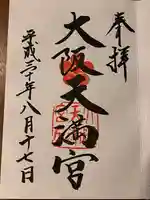 奉拝
大阪天満宮
平成二十年八月十七日